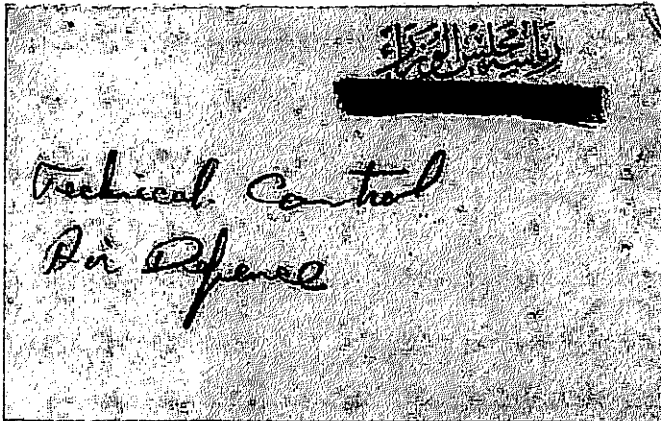 رئاسة مجلس الوزراء
Technical Control
Air Defense